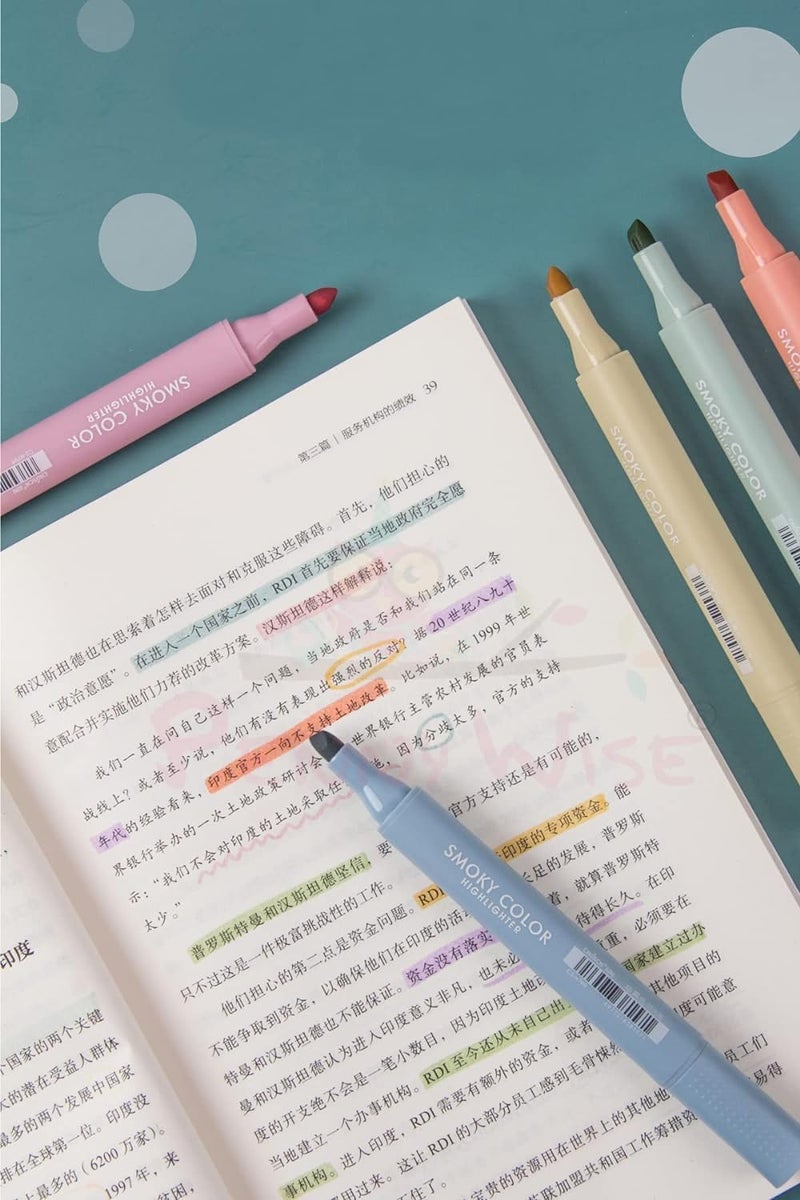 第三篇 | 服务机构的绩效 39
和汉斯坦德也在思索着怎样去面对和克服这些障碍。首先，他们担心的
是“政治意愿”。在进入一个国家之前，RDI 首先要保证当地政府完全愿
意配合并实施他们力荐的改革方案。汉斯坦德这样解释说：
我们一直在问自己这样一个问题，当地政府是否和我们站在同一条
战线上？或者至少说，他们有没有表现出强烈的反对？据 20 世纪八九十
年代的经验看来，印度官方一向不支持土地改革。比如说，在 1999 年世
界银行举办的一次土地政策研讨会 世界银行主管农村发展的官员表
示：“我们不会对印度的土地采取任 施，因为分歧太多，官方的支持
太少。”
普罗斯特曼和汉斯坦德坚信，要 官方支持还是有可能的，
只不过这是一件极富挑战性的工作。
他们担心的第二点是资金问题。RDI 印度的专项资金。能
不能争取到资金，以确保他们在印度的活动 足的发展，普罗斯
特曼和汉斯坦德也不能保证。资金没有落实 着，就算普罗斯特
曼和汉斯坦德认为进入印度意义非凡，也未必 待得长久。在印
度的开支绝不会是一笔小数目，因为印度土地 重，必须要在
当地建立一个办事机构。RDI 至今还从未自己出 国家建立过办
事机构。进入印度，RDI 需要有额外的资金，或者 其他项目的
用过来。这让 RDI 的大部分员工感到毛骨悚然 度可能意
宝贵的资源用在世界上的其他地 员工们
苏联加盟共和国工作筹措资 易得
不住了。
印度
个国家的两个关键
大的潜在受益人群体
最多的两个发展中国家
排在全球第一位。印度没
上最多的（6200 万家）。
1997 年，来
贫困，
SMOKY COLOR
HIGHLIGHTER
SMOKY COLOR
SMOKY COLOR
HIGHLIGHTER
SMOKY COLOR
SMOKY COLOR
HIGHLIGHTER
PennyWise